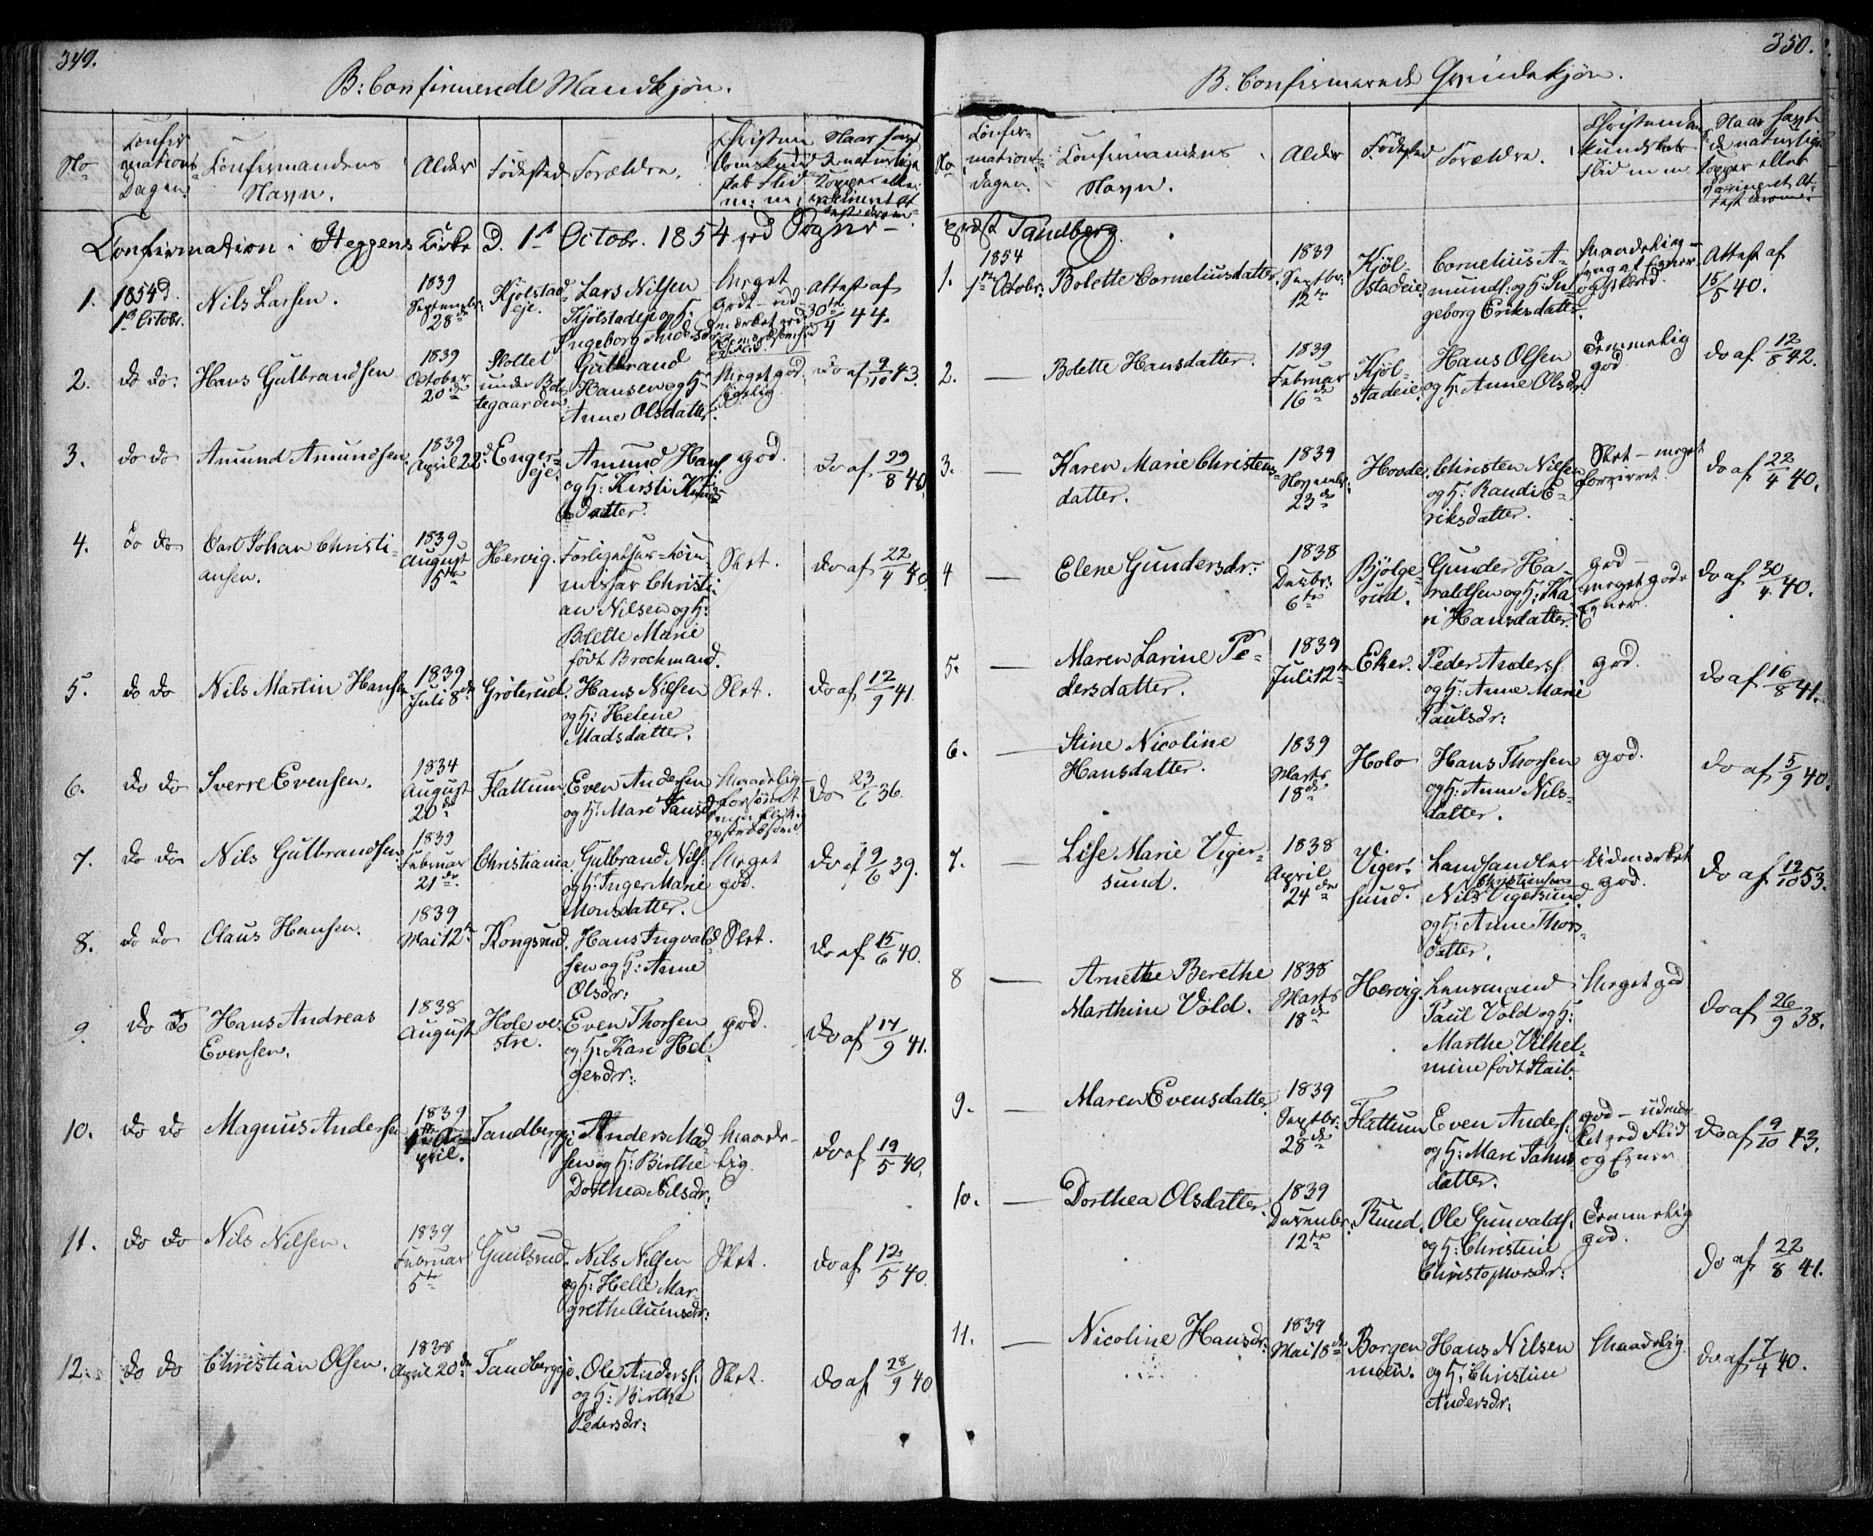 349.
B: Confirmerede Mandkjøn.
No
Confir
mations
Dagen.
Confirmandens
Navn.
Alder
Födested
Forældre.
Christen
domskund
skab Flid
m: m:
Naar havt
de naturlige
Kopper eller
vaccineret At
test derom
Confirmation i Heggens Kirke d. 1ste Octobr. 1854 ved Sogne-
1.
1854 d.
1ste Octobr.
Nils Larsen.
1839
Septembr.
28de
Kjölstad
eje.
Lars Nilsen
Kjölstadeje og H:
Ingeborg Andersdr
Meget
godt
Attest af
30te/4 44.
2.
do do.
Hans Gulbrandsen
1839
October
20de
Slottet
under Bu-
tegaarden
Gulbrand
Hansen og H:
Anne Olsdatter.
Meget god,
do af 9/10 43.
3.
do do
Amund Amundsen
1839
April 22de
Enger-
eje.
Amund Hans.
og H: Kirsti Knuds
datter.
god.
do af 29/8 40.
4.
do do
Carl Johan Christi-
ansen.
1839
August
5te
Hervig.
Forligelses-Com
missær Christi-
an Nilsen og H:
Bolette Marie
född Brochmand.
Slet.
do af 22/4 40.
5.
do do
Nils Martin Hansen
1839
Juli 8de
Gröterud.
Hans Nilsen
og H: Helene
Madsdatter.
Slet.
do af 12/9 41.
6.
do do
Sverre Evensen.
1834
August
20de
Flattum.
Even Andersen
og H: Mari Jansd
Maadelig
forsömt
men flink
do 23/6 36.
7.
do do
Nils Gulbrandsen
1839
Februar
21de
Christiania
Gulbrand Nils.
og H: Inger Marie
Monsdatter.
Meget
god.
do af 9/6 39.
8.
do do
Olaus Hansen.
1839
Mai 12te
Kongsrud.
Hans Ingvald
sen og H: Anne
Olsdr:
Slet.
do af 15/6 40.
9.
do do
Hans Andreas
Evensen.
1838
August
Hole ve-
stre.
Even Thorsen
og H: Kari Hel-
gesdr:
god.
do af 17/9 41.
10.
do do
Magnus Andersen
1839
A-
pril.
Tandbergej
Anders Mad
sen og H: Birthe
Dorthea Nilsdr:
Maade-
lig.
do af 19/5 40.
11.
do do
Nils Nilsen.
1839
Februar
5te
Gunlsrud.
Nils Nilsen
og H: Helle Mar-
grethe Auensdr:
Slet.
do af 12/5 40.
12.
do do
Christian Olsen.
1838
April 20de
Tandbergeje.
Ole Anders.
og H: Birthe
Pedersdr:
Slet.
do af 28/9 40
350.
B: Confirmerede Qvindekjön.
No
Confir-
mations-
dagen.
Confirmandens
Navn.
Alder
Födested
Forældre.
Christendoms
kundskab
Flid m. m.
Naar havt
de naturlige
Kopper eller
vaccineret At-
test derom.
præst Tandberg.
1.
1854
1ste Octobr:
Bolette Corneliusdatter.
1839
Septbr.
12te
Kjöl-
stadeie.
Cornelius A-
munds. og H: In
geborg Eriksdatter.
Maadelig
Attest af
15/5 40.
2.
—
Bolette Hansdatter.
1839
Februar
16de
Kjöl-
stadeie.
Hans Olsen
og H: Anne Olsdr.
Temmelig
god.
do af 12/8 42.
3.
—
Karen Marie Christens-
datter.
1839
Novembr.
23de
Hovde.
Christen Nilsen
og H: Randi E-
riksdatter.
Slet – meget
forvirret.
do af 22/4 40.
4
—
Elene Gundersdr:
1838
Decbr:
6te
Bjölge-
rud.
Gunder Ha-
raldsen og H: Ka
ri Hansdatter.
god –
meget gode
Evner.
do af 30/4 40.
5.
—
Maren Larine Pe-
dersdatter.
1839
Juli 12te
Eker.
Peder Anders.
og H: Anne Marie
Paulsdr:
god.
do af 16/8 41.
6.
—
Stine Nicoline
Hansdatter.
1839
Marts
18de
Holo
Hans Thorsen
og H: Anne Nils-
datter.
god.
do af 5/9 40.
7.
—
Lise Marie Viger-
sund.
1838
April
24de
Viger-
sund.
Landhandler
Christiansens
Nils Vigersund
og H: Anne Thors-
datter.
Udmærket
god.
do af 12/10 53.
8
—
Arnethe Berethe
Marthine Vold.
1838
Marts
18de
Hervig.
Lensmand
Paul Vold og H:
Marthe Vilhel-
mine född Staib.
Meget god
do af 26/9 38.
9.
—
Maren Evensdatter
1839
Septbr.
28de
Flattum
Even Anders.
og H: Mari Jahns
datter.
god – udmær-
ket ved Flid
og Evner
do af 9/10 43.
10.
—
Dorthea Olsdatter.
1839
Decembr.
12te
Ruud.
Ole Gunvalds.
og H: Christine
Christophersdr:
Temmelig
god.
do af 22/8 41.
11.
—
Nicoline Hansdr:
1839
Mai 18de
Borgen
moen.
Hans Nilsen
og H: Christine
Andersdr:
Maadelig
do af 7/4 40.